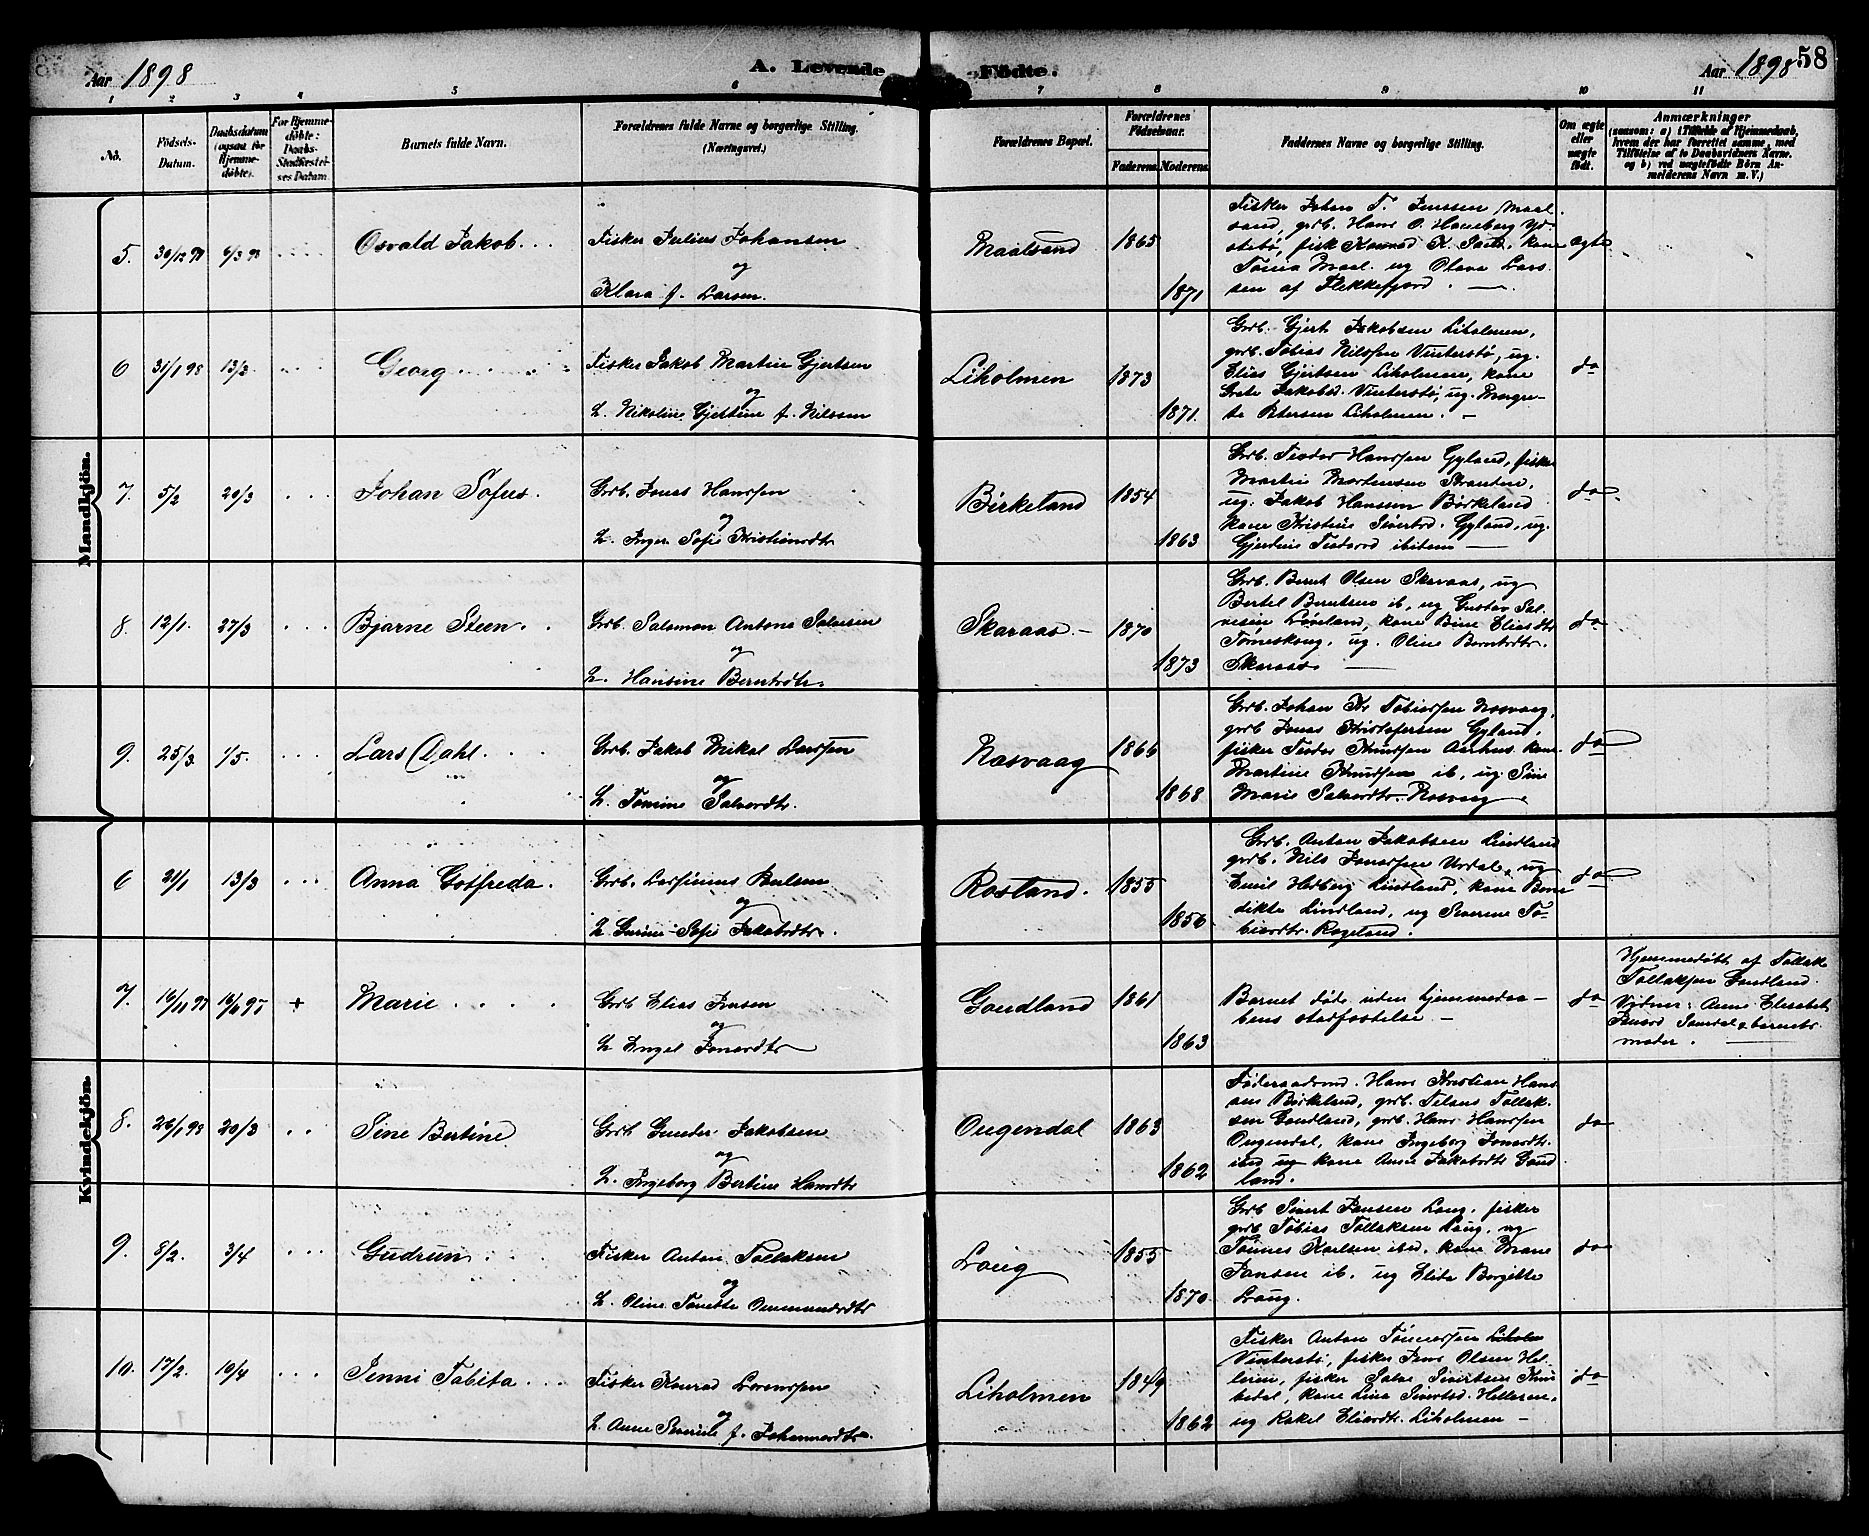 Aar 1898
A. Levende Födte.
Aar 1898
58
1 2 3 4 5 6 7 8 9 10 11
No.
Födsels-
Datum.
Daabsdatum
(ogsaa for
Hjemme-
döbte).
For Hjemme-
döbte:
Daabs-
Stadfæstel-
ses Datum
Barnets fulde Navn.
Forældrenes fulde Navne og borgerlige Stilling.
(Næringsvei.)
Forældrenes Bopæl.
Forældrenes
Födselsaar.
Faderens Moderens
Faddernes Navne og borgerlige Stilling.
Om ægte
eller
uægte
födt.
Anmærkninger
(saasom: a) i Tilfælde af Hjemmedaab,
hvem der har forrettet samme, med
Tilföielse af to Daabsvidners Navne.
og b) ved uægtefödte Börn An-
melderens Navn m. V.)
Mandkjön.
5. 30/12 97 6/3 98 Osvald Jakob
Fisker Julius Johansen
og
Klara f. Larsen.
Maalsund 1865
1871
Fisker Johan T. Jenssen, Maal
sund, grb. Hans O.
Tonia Maal. ug Olava Lars
sen af Flekkefjord.
ægte
6 31/1 98 13/3 Georg
Fisker Jakob Martin Gjertsen
og
h. Nikoline Gjertine f. Nilssen
Liholmen 1873
1871.
Grb. Gjert Jakobsen Liholmen,
grb. Tobias Nilssen Vinterstø, ug.
Elias Gjertsen Liholmen, kone
Grete Jakobsd. Vinterstø, ug. Margre-
te Petersen Liholmen. -
do
7. 5/2 20/3 Johan Sofus.
Grb. Jonas Hanssen
og
h. Inger Sofie Kristiansdtr
Birkeland 1854
1863
Grb. Teodor Hanssen Gyland, fisker
Martin Mortensen Stranden,
ug. Jakob Hanssen Birkeland
kone Kristine Sivertsd. Gyland, ug.
Gjertine Teodorsd ibidem
do
8. 12/1. 27/3 Bjarne Steen
Grb. Salomon Antons Salvesen
og
h. Hansine Berntsdtr.
Skaraas. - 1870
1873
Grb. Bernt Olsen Skaraas, ug
Bertel Berntsen ib, ug Gustav Sal-
vesen Løveland, kone Bine Eliasdtr
Tømeskoug, ug. Oline Berntsdtr.
Skaraas
do
9. 25/3 1/5. Lars Dahl
Grb. Jakob Mikal Larssen
og
h. Tomine Salvesdtr.
Rasvaag 1866
1868
Grb. Johan Kr Tobiassen Rasvaag,
grb Jonas Kristofersen Gyland,
fisker Teodor Knudsen Aarhus kone
Martine Knudsen ib, ug. Sine
Marie Salvesdtr. Rasvaag
do
Kvindekjön.
6 21/1 13/3 Anna Gotfreda.
Grb. Larsinius Paulsen
og
h Gurine Sofie Jakobsdtr.
Rostand. 1855
1856
Grb. Anton Jakobsen Lindland
grb. Nils Jonassen Urdal, ug
Emil Hedberg Lindland, kone Bene
dikte Lindland, ug Severine To-
biasdtr. Rageland.
do
7. 16/11 97 16/11 97 + Marie
Grb Elias Jensen
og
h Engel Jonasdtr
Goudland 1861
1863
Barnet døde uden hjemmedaa-
bens stadfæstelse -
do
Hjemmedøbt af Tollak
Tollaksen Goudland.
Vidner: Anne Elisabet
moder.
8. 26/1 98 20/3 Sine Bertine
Grb Gunder Jakobsen
og
h. Ingeborg Bertine Hansdtr
Ougendal 1863
1862
Føderaadsmd. Hans Kristian Hans
sen Birkeland, grb. Tollak-
sen Goudland, grb. Hans Hanssen
Ougendal, kone Ingeborg Jonasdtr.
ibid ug kone Anne Jakobsdtr Goud
land.
do
9. 8/2. 3/4 Gudrun
Fisker Anton Tollaksen
og
h. Oline Tonette Ommundsdtr
Loug 1855
1870
Grb Sivert Jansen Loug. fisker
grb Tobias Tollaksen Laug, ug
Tønnes Karlsen ibid. kone Mane
Jansen ib. ug Elida Borgitte
Loug.
do
10. 17/2. 10/4 Jenni Tabita
Fisker Konrad Lorentsen
og
h. Anne Severine f. Johannesdtr.
Liholmen 1849
1862
Fisker Anton Tønnessen
Vinterstø, fisker Jens Olsen Hel-
leren, fisker Sivertsen
kone Lina Sivertsd. Helleren,
ug Rakel Eliasdtr. Liholmen -
do